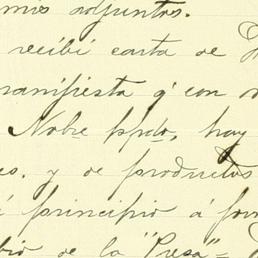 mis adjuntos.
recibí carta de
manifiesta q' con
Nobre ppdo, hay
es. y de productos
principio á
de la "Presa"=